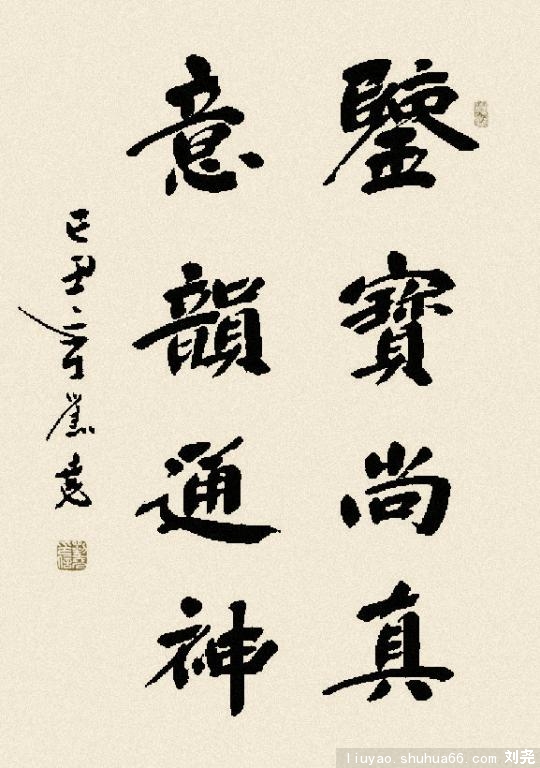 鑒寶尚真
意韻通神
己丑
堯
liuyao.shuhua66.com 刘尧